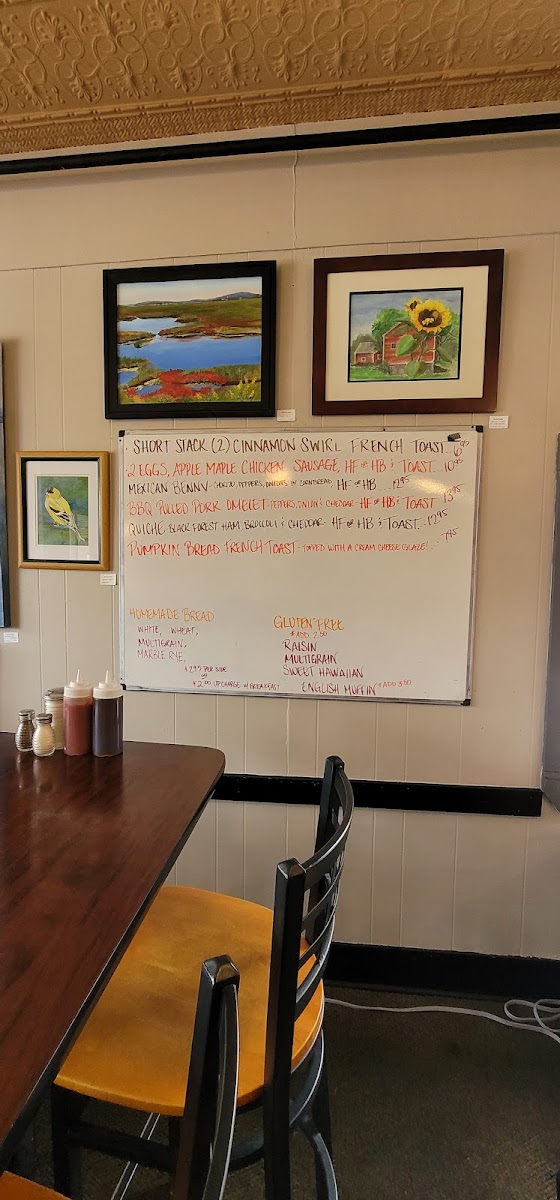 · SHORT STACK (2) CINNAMON SWIRL FRENCH TOAST 6.95
· 2 EGGS, APPLE MAPLE CHICKEN SAUSAGE, HF OR HB & TOAST.. 10.95
MEXICAN BENNY - CHORIZO, PEPPERS, ONIONS ON CORNBREAD, HF OR HB .. 12.95
BBQ PULLED PORK OMELET - PEPPERS, ONION & CHEDDAR - HF OR HB & TOAST 13.95
QUICHE BLACK FOREST HAM, BROCCOLI & CHEDDAR - HF OR HB & TOAST.. 12.95
PUMPKIN BREAD FRENCH TOAST - TOPPED WITH A CREAM CHEESE GLAZE! ... 7.95
HOMEMADE BREAD
WHITE, WHEAT,
MULTIGRAIN,
MARBLE RYE
$2.95 PER SIDE
OR
$2.00 UPCHARGE W/ BREAKFAST
GLUTEN-FREE
$ADD 2.50
RAISIN
MULTIGRAIN
SWEET HAWAIIAN
ENGLISH MUFFIN $ADD 3.00